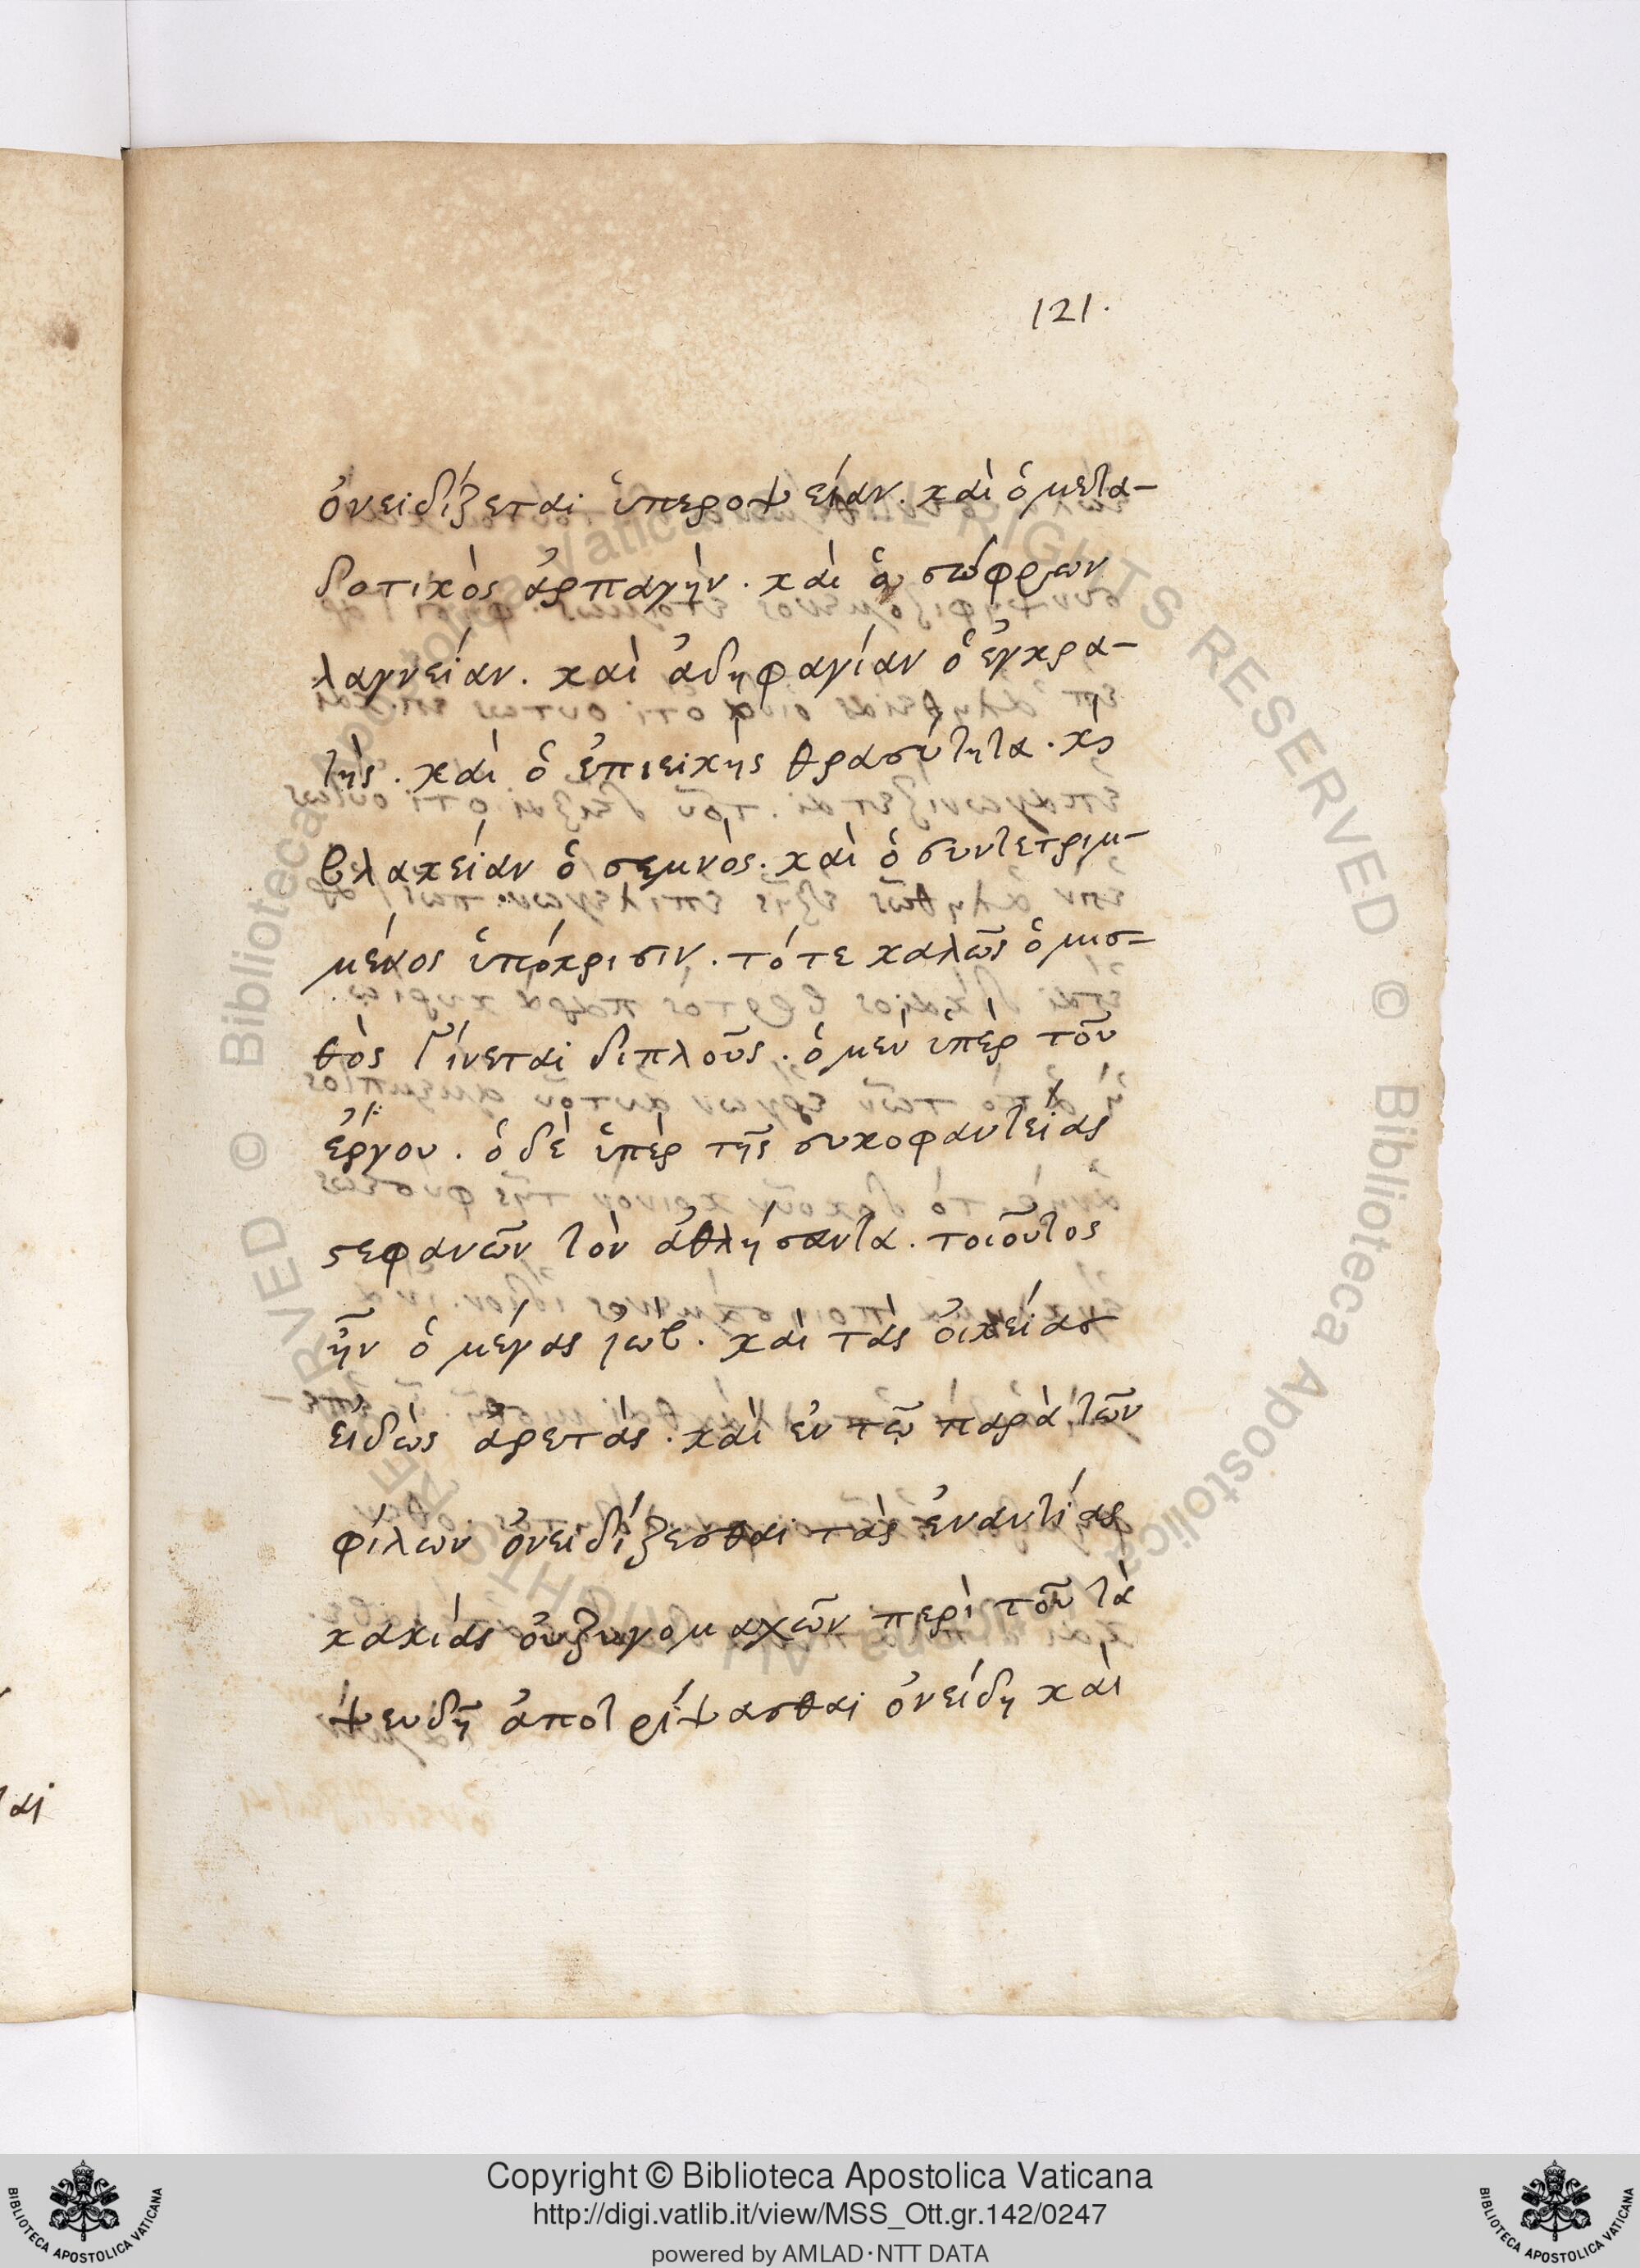 121.
ὀνειδίζεται ὑπεροψείαν. καὶ ὁ μετα-
δοτικὸς ἁρπαγήν. καὶ ὁ σώφρων
λαγνείαν. καὶ ἀδηφαγίαν ὁ ἐγκρα-
τής. καὶ ὁ ἐπιεικὴς θρασύτητα. κ̀
βλακείαν ὁ σεμνός. καὶ ὁ συντετριμ-
μένος ὑπόκρισιν. τότε καλῶς ὁ μισ-
θὸς γίνεται διπλοῦς. ὁ μὲν ὑπὲρ τοῦ
ἔργου. ὁ δὲ ὑπὲρ τῆς συκοφαντείας
στεφανῶν τὸν ἀθλήσαντα. τοιοῦτος
ἦν ὁ μέγας ἰώβ. καὶ τὰς οἰκείας
εἰδὼς ἀρετάς. καὶ ἐν τῷ παρὰ τῶν
φίλων ὀνειδίζεσθαι τὰς ἐναντίας
κακίας οὐ ζυγομαχῶν περὶ τοῦ τὰ
ψευδῆ ἀποτρίψασθαι ὀνείδη καὶ
αι
Copyright © Biblioteca Apostolica Vaticana
http://digi.vatlib.it/view/MSS_Ott.gr.142/0247
powered by AMLAD·NTT DATA
BIBLIOTECA APOSTOLICA VATICANA
BIBLIOTECA APOSTOLICA VATICANA